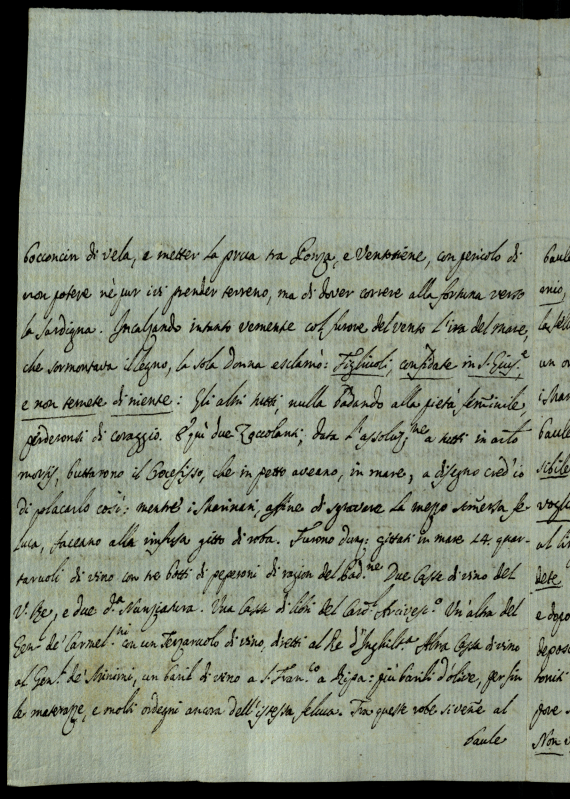 boccocin di vela, e metter la prua tra Ponza, e Ventotiene, con pericolo di
non potere nè pur ivi prender terreno, ma di dover correre alla fortuna verso
la Sardigna. Incalzando intanto vemente col furore del vento l'ira del mare,
che sormontava il legno, la sola donna esclamò: Figliuoli, confidate in S. Gius.e,
e non temete di niente: Gli altri tutti, nulla badando alla pietà feminile,
perderonsi di coraggio. E quì due Zoccolanti, data l'assoluz.ne a tutti in arto
mortis, buttarono il Crocifisso, che in petto aveano, in mare, a disegno cred'io
di placarlo così; mentre i Marinari, affine di sgravare la mezzo somersa fe-
luca, faceano alla rinfusa gitto di roba. Furono dunq: gittati in mare 24. quar-
taruoli di vino con tre botti di peperoni di ragion del Pad.ne Due Casse di vino del
V. Re, e due d.a Nunziatura. Una Cassa di libri del Card.l Arcives.o Un'altra del
Gen.l de' Carmel.ni con un Terzaruolo di vino, diretti al Re d'Inghilt.a Altra Cassa di vino
al Gen.l de' Minimi, un baril di vino a S. Fran.co a Ripa: più barili d'olive, per fin
le materazze, e molti ordegni ancora dell'istessa feluca. Tra queste robe si venne al
baule
baule
an o
baule
sibile
voglio
al
dete
e dopo
depos
Non